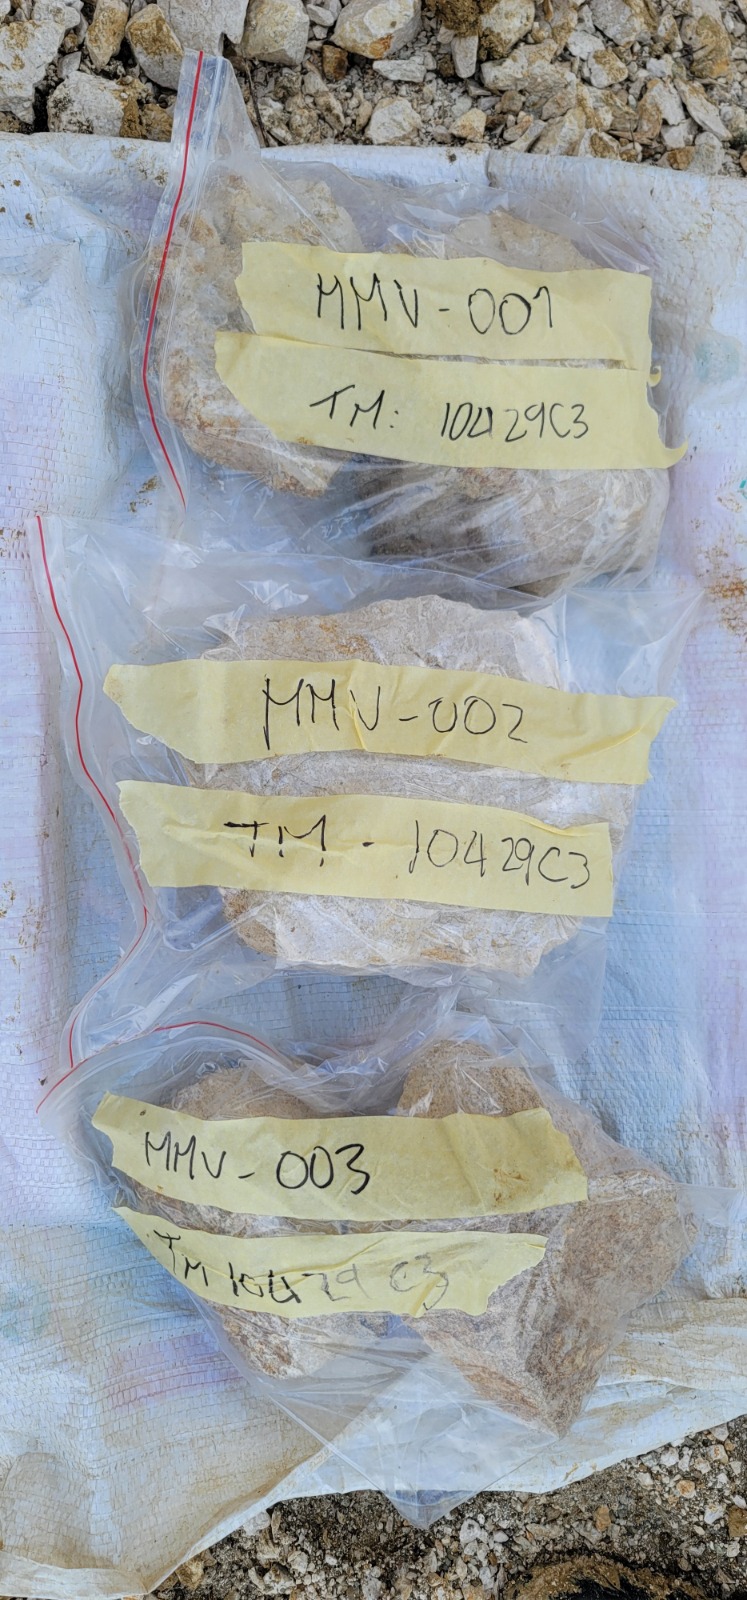 MMV-001
TM: 10429C3
MMV-002
TM - 10429C3
MMV-003
TM 10429C3